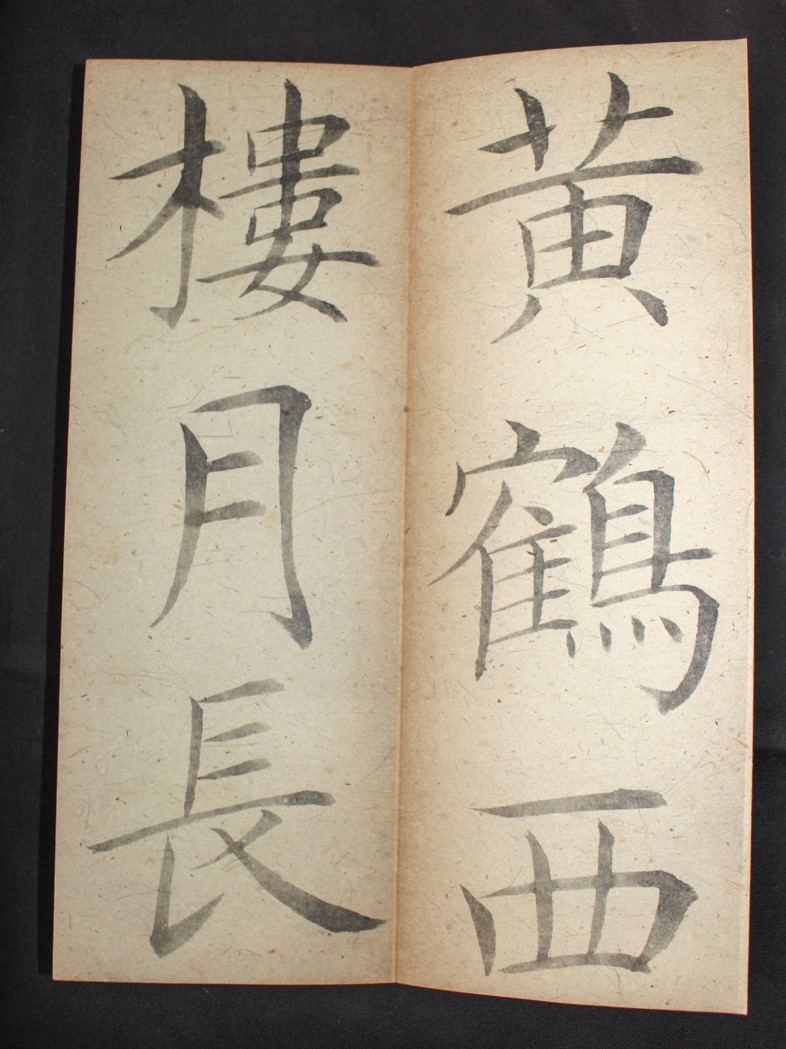 黄鶴西
樓月長